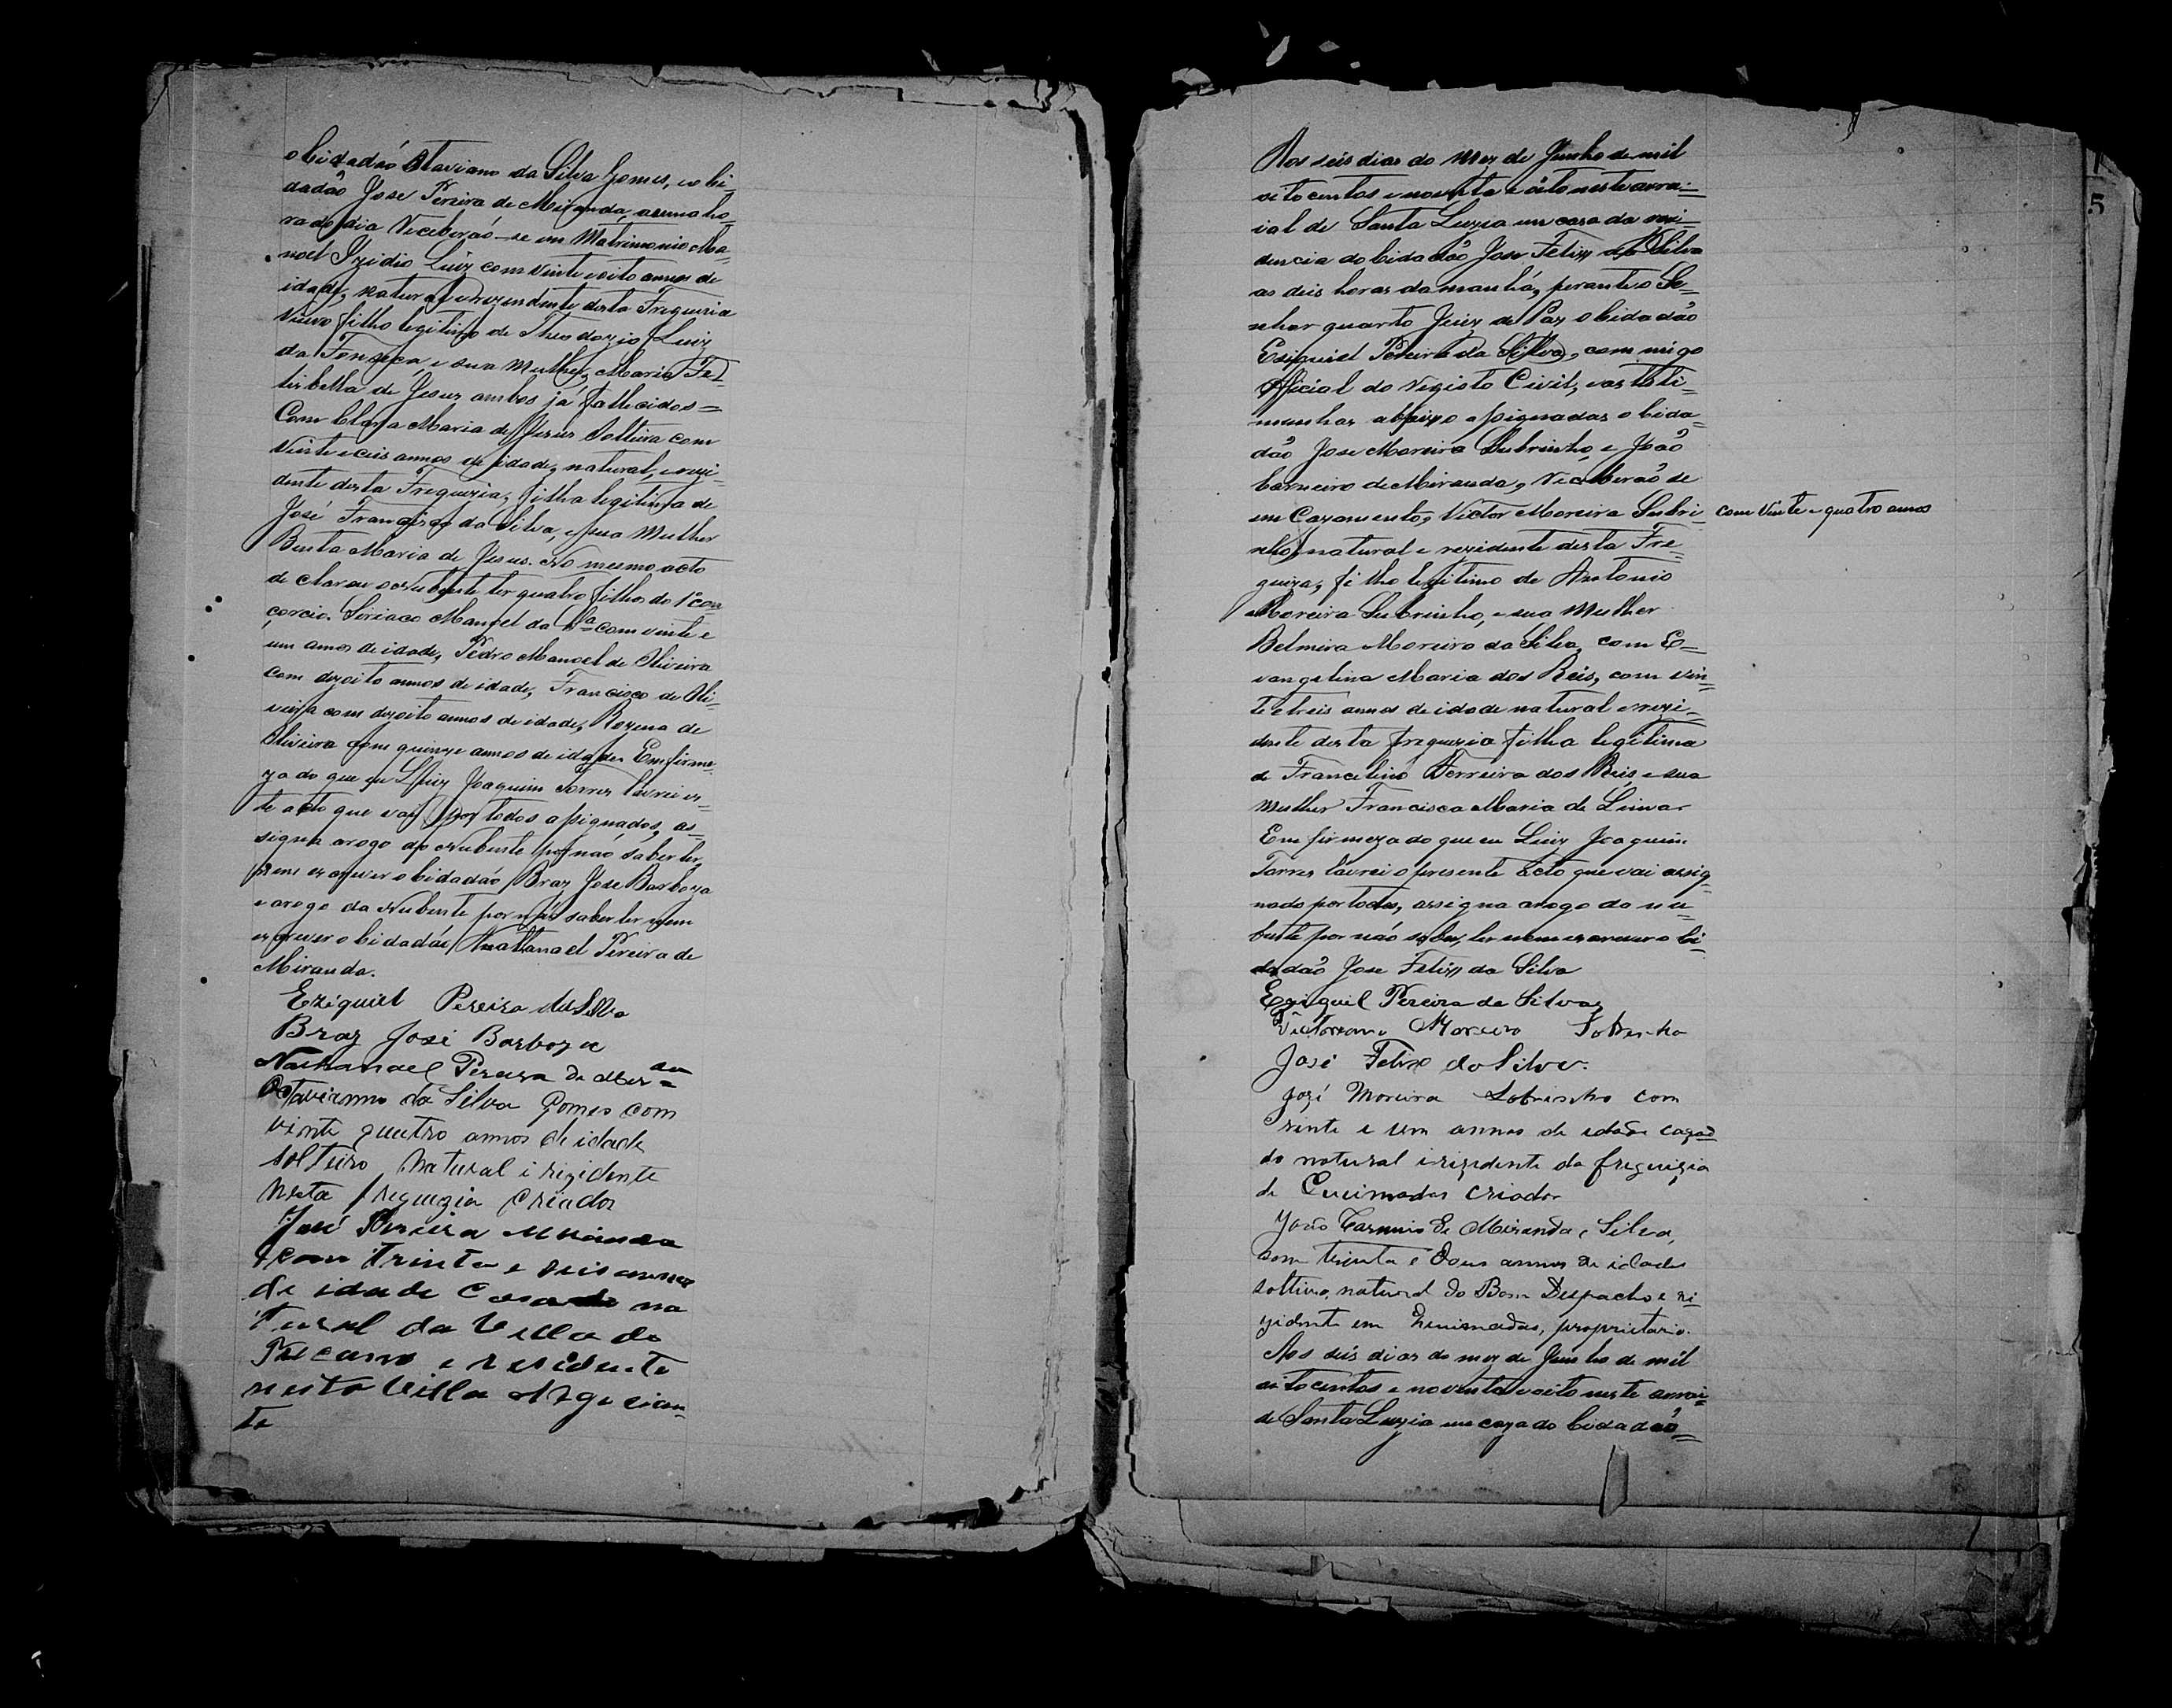 o Cidadaõ Otaviano da Silva Gomes, e o Ci-
dadaõ Jose Pereira de Miranda, a
ra do dia Receberaõ-se em Matrimonio Ma-
noel Izidio Luiz com vinte e oito annos de
idade, natural e rezendente desta Freguezia
Viuvo filho legitimo de Theodozio Luiz
da Fonseca, e sua Mulher Maria
de Jesus ambos já fallecidos=
Com Clara Maria de Jesus Solteira com
Vinte e ceis annos de idade, natural, e rezi-
dente desta Freguezia, filha legitima de
José Francisco da Silva, e sua Mulher
Benta Maria de Jesus. No mesmo acto
declarou o Nubente ter quatro filhos do 1º con
çorcio. Siriaco Manoel da com vinte e
um annos de idade, Pedro Manoel de Oliveira
com dezoito annos de idade, Francisco de Oli-
veira com dezoito annos de idade, Rozena de
Oliveira com quinze annos de idade. Em firme-
za do que eu Luiz Joaquim Torres lavrei es-
te acto que vai por todos assignados, as-
signa arogo do Nubente por naõ saber ler,
nem escrever o Cidadaõ Braz Jose Barboza
e arogo da Nubente por naõ saber ler nem
escrever o Cidadaõ Nathanael Pereira de
Miranda.
Eziquiel Pereira da Silva
Braz José Barboza
Nathanael Pereira de Mir.da
Octaviano da Silva Gomes com
vinte quatro annos de idade
solteiro, natural i rezidente
nesta freguezia Criador
José Pereira Miranda
com trinta e seis annos
de idade Casado na
tural da Villa do
Tucano e residente
nesta Villa Negocian-
te
Aos seis dias do Mez de Junho de mil
oitocentos e noventa e oito neste arra-
ial de Santa Luzia em casa da rezi-
dencia do Cidadão Jose Felix da Silva
as deis horas da manhá, perante o Se-
nhor quarto Juiz de Paz o Cidadão
Eziquiel Pereira da Silva, com migo
Official do Registo Civil, e as teste-
munhas abaixo assignadas o Cida-
dão Jose Moreira Subrinho, e João
Carneiro de Miranda, Receberaõ se
em Cazamento, Victor Moreira Subri- com vinte e quatro annos
nho, natural e rezidente desta Fre-
gueza, filho legitimo de Antonio
Moreira Subrinho, e sua Mulher
Belmira Moreira da Silva, com E-
vangelina Maria dos Reis, com vin-
te e treis annos de idade natural e rezi-
dente desta freguezia filha legitima
de Francelino Ferreira dos Reis e sua
mulher Francisca Maria de Lima.
Em firmeza do que eu Luiz Joaquim
Torres lavrei o presente acto que vai assig-
nado por todos, assigna arogo da nu-
bente por não saber, ler nem escrever o Ci-
dadão Jose Felix da Silva
Eziquel Pereira da Silva
Victoreano Moreira Sobrinho
José Felix da Silva.
Jozé Moreira Sobrinho com
vinte e um annos de idade caza
do natural i rizidente da freguizia
de Queimadas criador
João Carneiro de Miranda e Silva,
com trinta e dous annos de idade
solteiro, natural do Bom Despacho e re-
zidente em Queimadas, proprietario.
Aos seis dias do mez de Junho de mil
oitocentos e noventa e oito neste arrai-
de Santa Luzia em caza do Cidadaõ